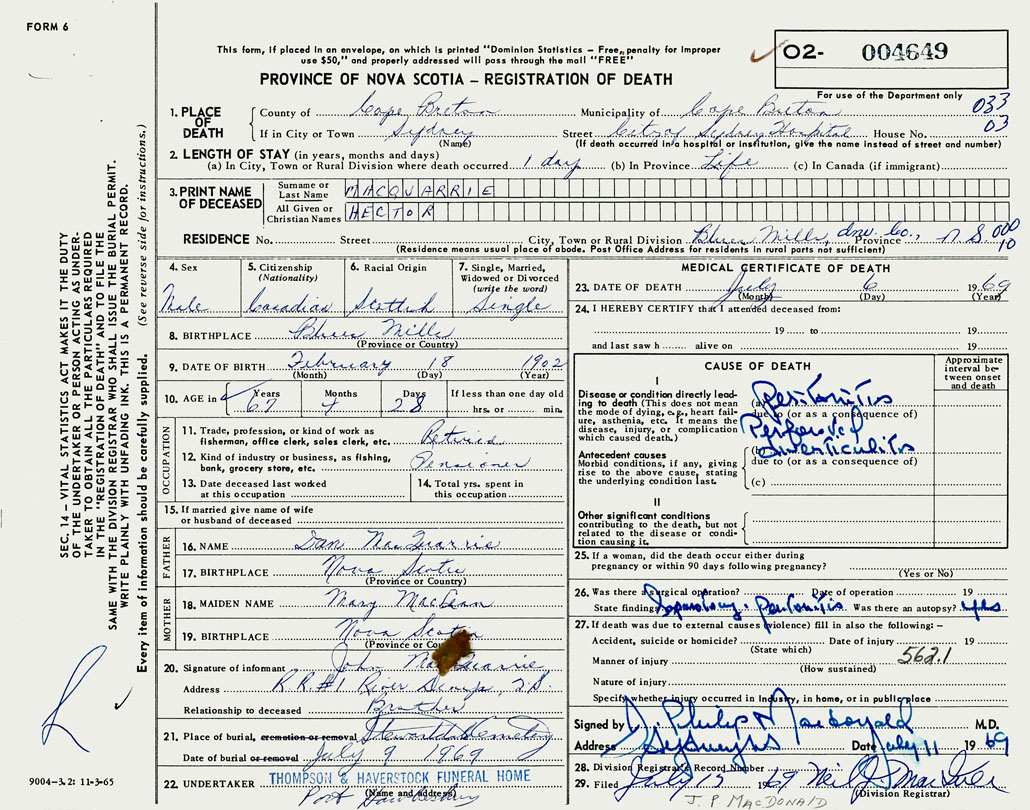 FORM 6
This form, if placed in an envelope, on which is printed "Dominion Statistics – Free, penalty for improper
use $50," and properly addressed will pass through the mail "FREE"
O2- 004649
PROVINCE OF NOVA SCOTIA – REGISTRATION OF DEATH
For use of the Department only
033
03
1. PLACE OF DEATH
County of Cape Breton Municipality of Cape Breton
If in City or Town Sydney Street City of Sydney Hospital House No.
(Name) (If death occurred in a hospital or institution, give the name instead of street and number)
2. LENGTH OF STAY (in years, months and days)
(a) In City, Town or Rural Division where death occurred 1 day (b) In Province Life (c) In Canada (if immigrant)
3. PRINT NAME OF DECEASED
Surname or Last Name MACQUARRIE
All Given or Christian Names HECTOR
RESIDENCE No. Street City, Town or Rural Division Blues Mills, Inv. Co., Province N.S. 000
10
(Residence means usual place of abode. Post Office Address for residents in rural parts not sufficient)
4. Sex Male
5. Citizenship (Nationality) Canadian
6. Racial Origin Scottish
7. Single, Married, Widowed or Divorced (write the word) Single
8. BIRTHPLACE Blues Mills
(Province or Country)
9. DATE OF BIRTH February 18 1902
(Month) (Day) (Year)
10. AGE in Years 67 Months 4 Days 28 If less than one day old hrs. or min.
OCCUPATION
11. Trade, profession, or kind of work as fisherman, office clerk, sales clerk, etc. Retired
12. Kind of industry or business, as fishing, bank, grocery store, etc. Pensioner
13. Date deceased last worked at this occupation
14. Total yrs. spent in this occupation
15. If married give name of wife or husband of deceased
FATHER
16. NAME Dan MacQuarrie
17. BIRTHPLACE Nova Scotia
(Province or Country)
MOTHER
18. MAIDEN NAME Mary MacLean
19. BIRTHPLACE Nova Scotia
(Province or Country)
20. Signature of informant John MacQuarrie
Address R.R.#1 River Denys, N.S.
Relationship to deceased Brother
21. Place of burial, cremation or removal Cemetery
Date of burial or removal July 9 1969
22. UNDERTAKER THOMPSON & HAVERSTOCK FUNERAL HOME
(Name and address)
Port Hawkesbury
MEDICAL CERTIFICATE OF DEATH
23. DATE OF DEATH July 6 1969
(Month) (Day) (Year)
24. I HEREBY CERTIFY that I attended deceased from:
19 to 19
and last saw h alive on 19
CAUSE OF DEATH
Approximate interval between onset and death
I
Disease or condition directly leading to death (This does not mean the mode of dying, e.g., heart failure, asthenia, etc. It means the disease, injury, or complication which caused death.)
(a) Peritonitis
due to (or as a consequence of)
Perforated
(b) diverticulitis
due to (or as a consequence of)
Antecedent causes
Morbid conditions, if any, giving rise to the above cause, stating the underlying condition last.
(c)
II
Other significant conditions contributing to the death, but not related to the disease or condition causing it.
25. If a woman, did the death occur either during pregnancy or within 90 days following pregnancy?
(Yes or No)
26. Was there a surgical operation? Date of operation 19
State findings Laparotomy. Peritonitis Was there an autopsy? yes
27. If death was due to external causes (violence) fill in also the following: –
Accident, suicide or homicide? Date of injury 19
(State which)
Manner of injury 562.1
(How sustained)
Nature of injury
Specify whether injury occurred in industry, in home, or in public place
Signed by J. Philip MacDonald M.D.
Address Sydney NS Date July 11 1969
28. Division Registrar's Record Number
29. Filed July 15 1969 Neil J. MacIver
(Division Registrar)
J. P. MACDONALD
SEC. 14 – VITAL STATISTICS ACT MAKES IT THE DUTY
OF THE UNDERTAKER OR PERSON ACTING AS UNDER-
TAKER TO OBTAIN ALL THE PARTICULARS REQUIRED
IN THE "REGISTRATION OF DEATH" AND TO FILE THE
SAME WITH THE DIVISION REGISTRAR WHO SHALL ISSUE THE BURIAL PERMIT.
WRITE PLAINLY WITH UNFADING INK. THIS IS A PERMANENT RECORD.
Every item of information should be carefully supplied. (See reverse side for instructions.)
9004-3.2: 11-3-65